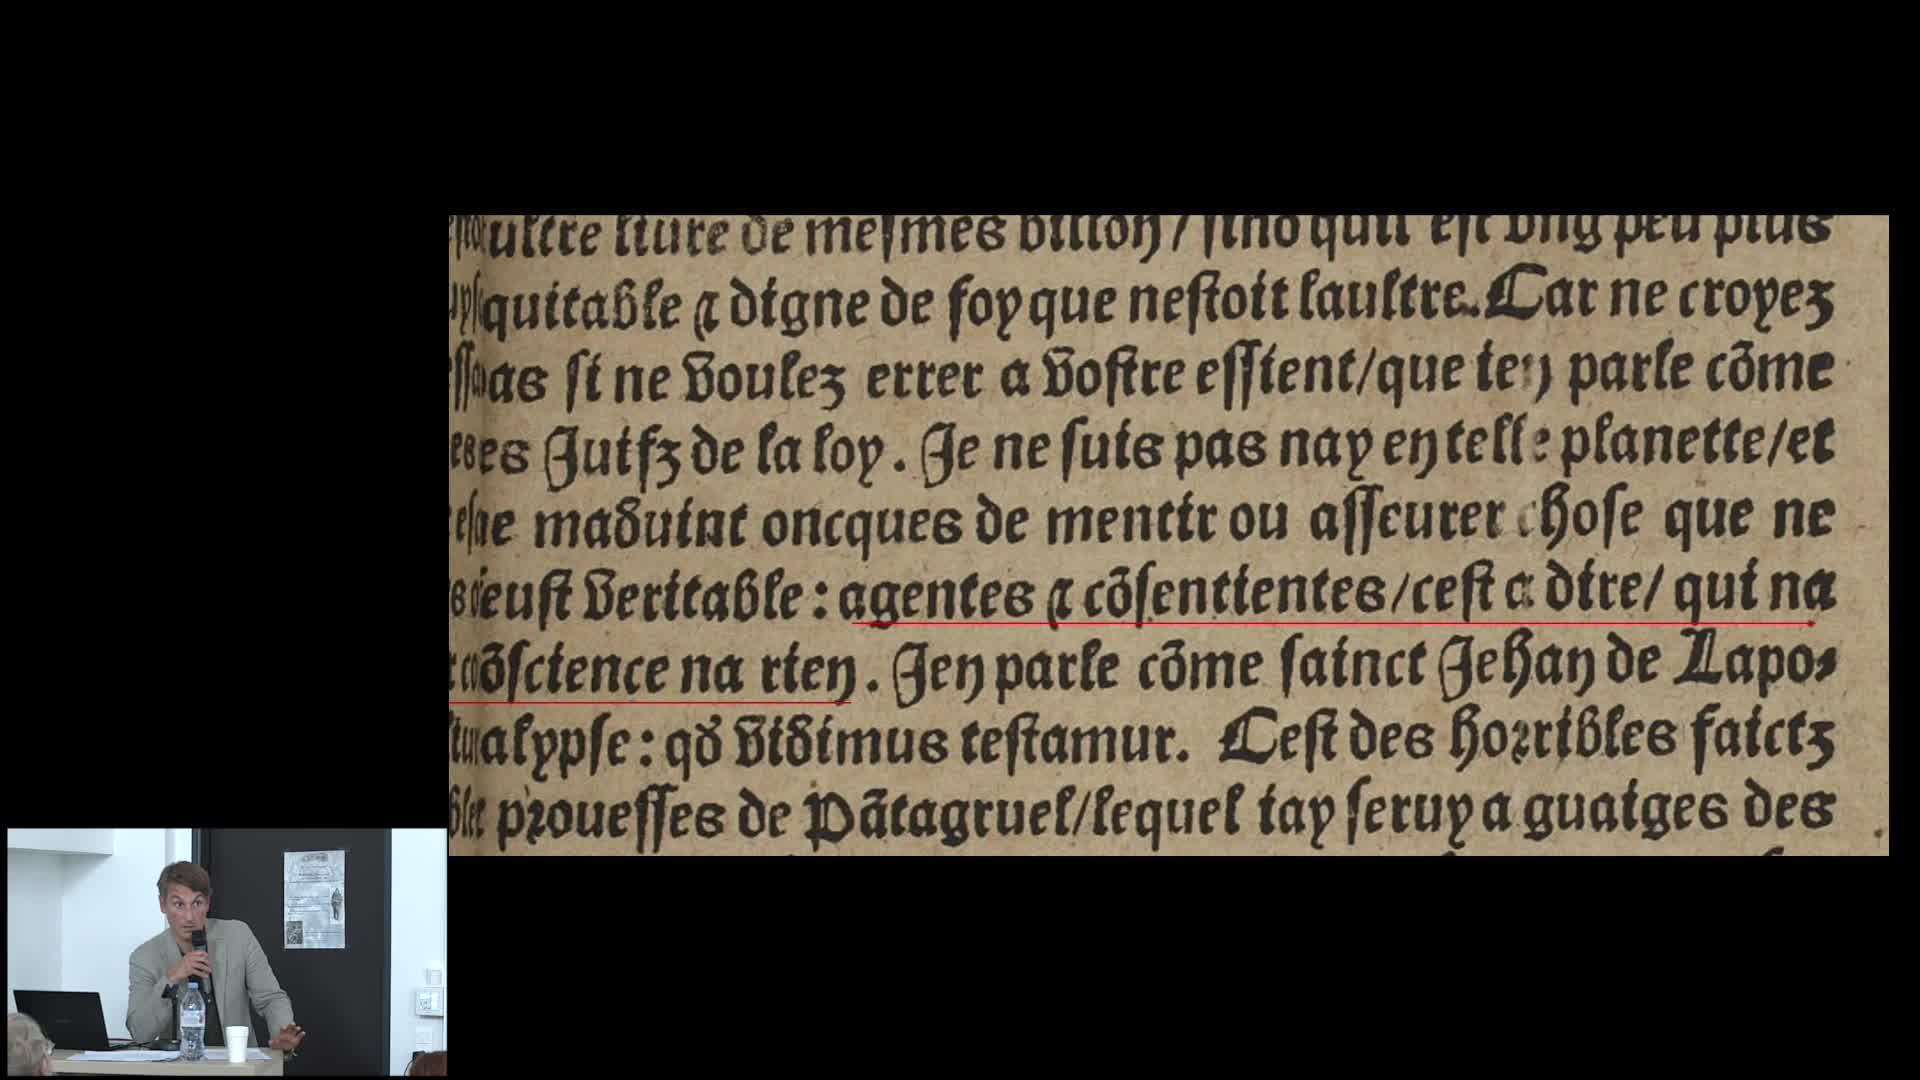 ultre liure de mesmes billon / sinō quil est vng peu plus
quitable ⁊ digne de foy que nestoit laultre. Car ne croyez
as si ne voulez errer a vostre essient/que ien parle cōme
es Juifz de la loy. Je ne suis pas nay en telle planette/et
ne maduint oncques de mentir ou asseurer chose que ne
eust veritable : agentes ⁊ cōsentientes/cest a dire/ qui na
cōscience na rien. Jen parle cōme sainct Jehan de Lapo⸗
alypse : qď vidimus testamur. Cest des horribles faictz
prouesses de Pātagruel/lequel iay seruy a guaiges des